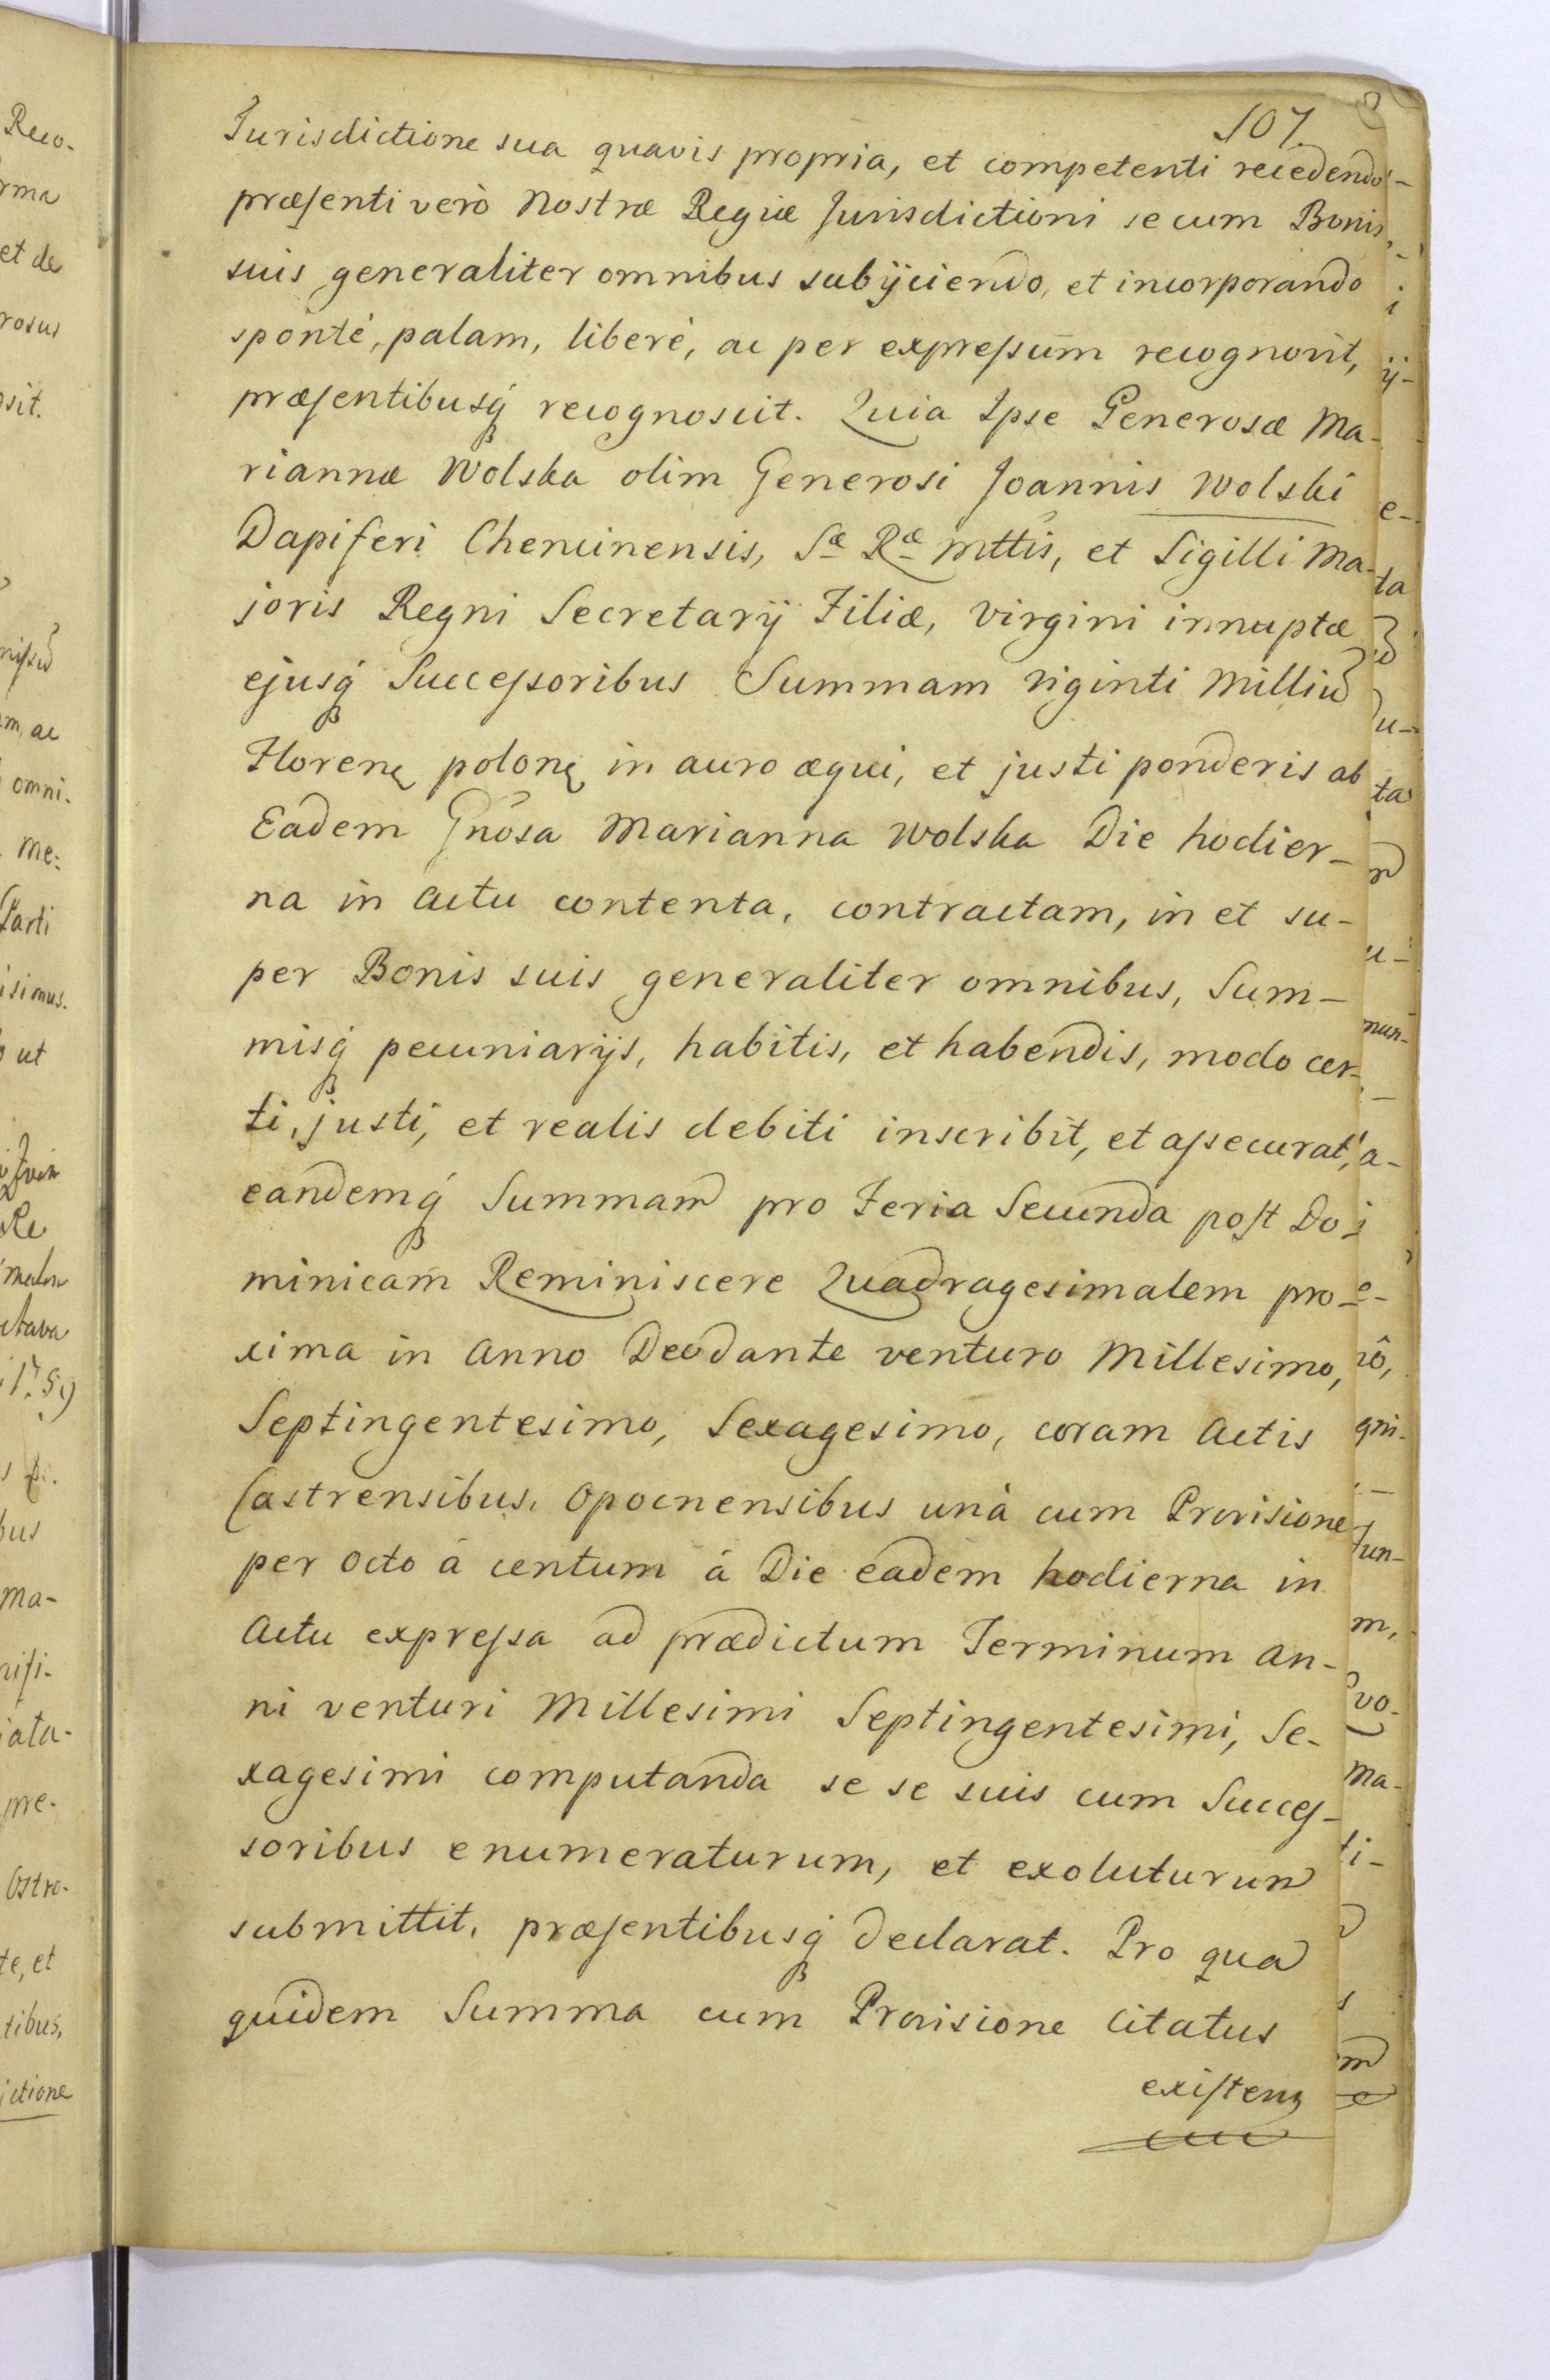 107.
Jurisdictione sua quavis propria, et competenti recedendo
præsenti verò Nostræ Regiæ Jurisdictioni se cum Bonis
suis generaliter omnibus subÿciendo, et incorporando
sponté, palam, liberé, ac per expressum recognovit,
præsentibusq́ recognoscit. Quia Ipse Generosæ Ma-
riannæ Wolska olim Generosi Joannis Wolski
Dapiferi Chencinensis, Sæ Ræ Mttis, et Sigilli Ma-
joris Regni Secretarÿ Filiæ, Virgini innuptæ
ejusq́ Successoribus Summam Viginti Milliũ
Florenę polonę in auro æqui, et justi ponderis ab
Eadem Gnosa Marianna Wolska Die hodier-
na in Actu contenta, contractam, in et su-
per Bonis suis generaliter omnibus, Sum-
misq́ pecuniarÿs, habitis, et habendis, modo cer-
ti, justi, et realis debiti inscribit, et assecurat,
eandemq́ Summam pro Feria Secunda post Do-
minicam Reminiscere Quadragesimalem pro-
xima in Anno Deodante venturo Millesimo,
Septingentesimo, Sexagesimo, coram Actis
Castrensibus, Opocnensibus unà cum Provisione
per Octo á centum á Die eadem hodierna in
Actu expressa ad prædictum Terminum An-
ni venturi Millesimi Septingentesimi, Se-
xagesimi computanda se se suis cum Succes-
soribus enumeraturum, et exoluturum
submittit, præsentibusq́ declarat. Pro qua
quidem Summa cum Provisione Citatus
existens